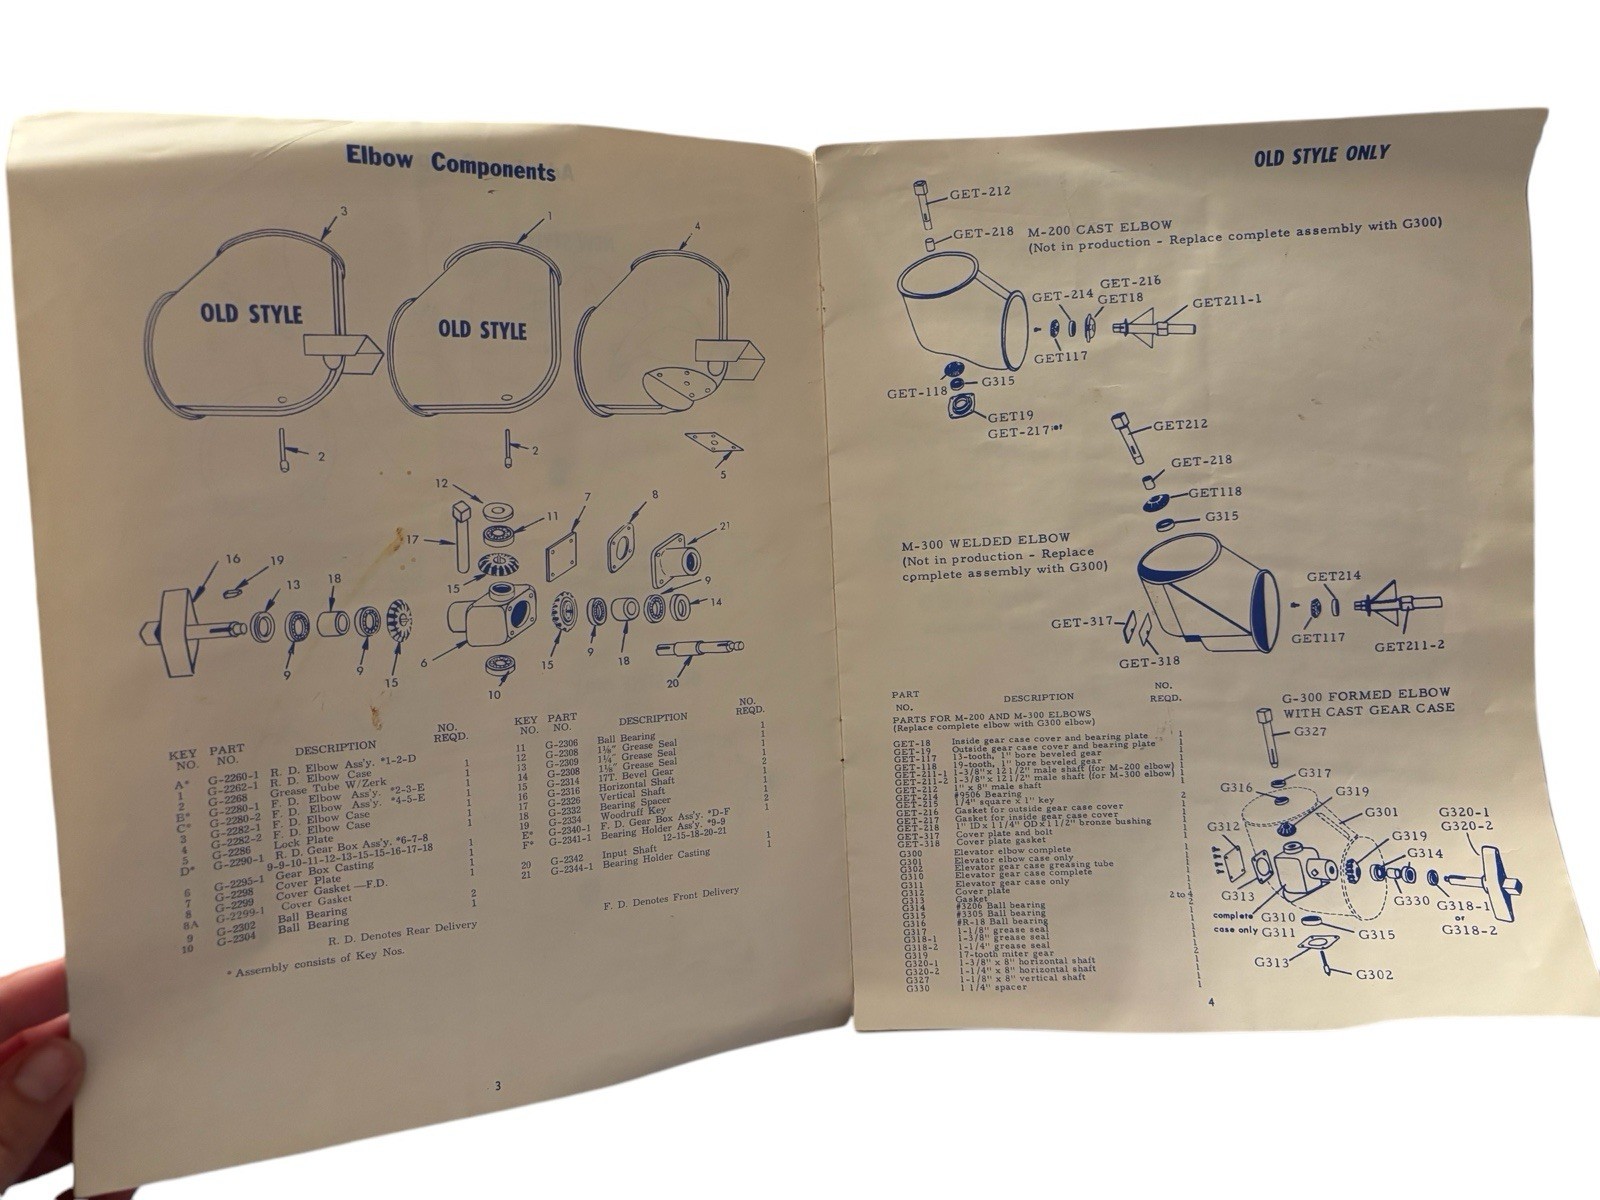 Elbow Components
3
1
4
OLD STYLE
OLD STYLE
2
2
5
12
11
7
8
21
17
16
19
13
18
15
9
14
6
9
9
15
10
15
9
18
20
KEY NO. PART NO. DESCRIPTION NO. REQD.
A* G-2260-1 R. D. Elbow Ass'y. *1-2-D 1
1 G-2262-1 R. D. Elbow Case 1
2 G-2268 Grease Tube W/Zerk 1
B* G-2280-1 F. D. Elbow Ass'y. *2-3-E 1
C* G-2280-2 F. D. Elbow Ass'y. *4-5-E 1
3 G-2282-1 F. D. Elbow Case 1
4 G-2282-2 F. D. Elbow Case 1
5 G-2286 Lock Plate
D* G-2290-1 R. D. Gear Box Ass'y. *6-7-8
9-9-10-11-12-13-15-15-16-17-18 1
6 G-2295-1 Gear Box Casting 1
7 G-2298 Cover Plate 1
8 G-2299 Cover Gasket —F.D.
8A G-2299-1 Cover Gasket
9 G-2302 Ball Bearing 2
10 G-2304 Ball Bearing 1
R. D. Denotes Rear Delivery
* Assembly consists of Key Nos.
KEY NO. PART NO. DESCRIPTION NO. REQD.
11 G-2306 Ball Bearing 1
12 G-2308 1⅛" Grease Seal 1
13 G-2309 1¼" Grease Seal 1
14 G-2308 1⅛" Grease Seal 1
15 G-2314 17T. Bevel Gear 2
16 G-2316 Horizontal Shaft 1
17 G-2326 Vertical Shaft 1
18 G-2332 Bearing Spacer 2
19 G-2334 Woodruff Key 1
E* G-2340-1 F. D. Gear Box Ass'y. *D-F
F* G-2341-1 Bearing Holder Ass'y. *9-9
12-15-18-20-21 1
20 G-2342 Input Shaft 1
21 G-2344-1 Bearing Holder Casting 1
F. D. Denotes Front Delivery
3
OLD STYLE ONLY
GET-212
GET-218
M-200 CAST ELBOW
(Not in production - Replace complete assembly with G300)
GET-216
GET-214 GET18
GET211-1
GET117
GET-118
G315
GET19
GET-217
GET212
GET-218
GET118
G315
M-300 WELDED ELBOW
(Not in production - Replace
complete assembly with G300)
GET214
GET-317
GET117
GET211-2
GET-318
PART NO. DESCRIPTION NO. REQD.
PARTS FOR M-200 AND M-300 ELBOWS
(Replace complete elbow with G300 elbow)
GET-18 Inside gear case cover and bearing plate 1
GET-19 Outside gear case cover and bearing plate 1
GET-117 13-tooth, 1" bore beveled gear 1
GET-118 19-tooth, 1" bore beveled gear 1
GET-211-1 1-3/8" x 12 1/2" male shaft (for M-200 elbow) 1
GET-211-2 1-3/8" x 12 1/2" male shaft (for M-300 elbow) 1
GET-212 1" x 8" male shaft
GET-214 #9506 Bearing 2
GET-215 1/4" square x 1" key
GET-216 Gasket for outside gear case cover 1
GET-217 Gasket for inside gear case cover 1
GET-218 1" ID x 1 1/4" OD x 1 1/2" bronze bushing 1
GET-317 Cover plate and bolt 1
GET-318 Cover plate gasket 1
G300 Elevator elbow complete 1
G301 Elevator elbow case only 1
G302 Elevator gear case greasing tube 1
G310 Elevator gear case complete 1
G311 Elevator gear case only 1
G312 Cover plate
G313 Gasket 2 to 4
G314 #3206 Ball bearing 2
G315 #3305 Ball bearing 1
G316 #R-18 Ball bearing 1
G317 1-1/8" grease seal 1
G318-1 1-3/8" grease seal 1
G318-2 1-1/4" grease seal 1
G319 17-tooth miter gear 2
G320-1 1-3/8" x 8" horizontal shaft 1
G320-2 1-1/4" x 8" horizontal shaft 1
G327 1-1/8" x 8" vertical shaft 1
G330 1 1/4" spacer 1
G-300 FORMED ELBOW
WITH CAST GEAR CASE
G327
G317
G316
G319
G301
G320-1
G320-2
G312
G319
G314
G313
G330
G318-1
or
G318-2
complete G310
case only G311
G315
G313
G302
4